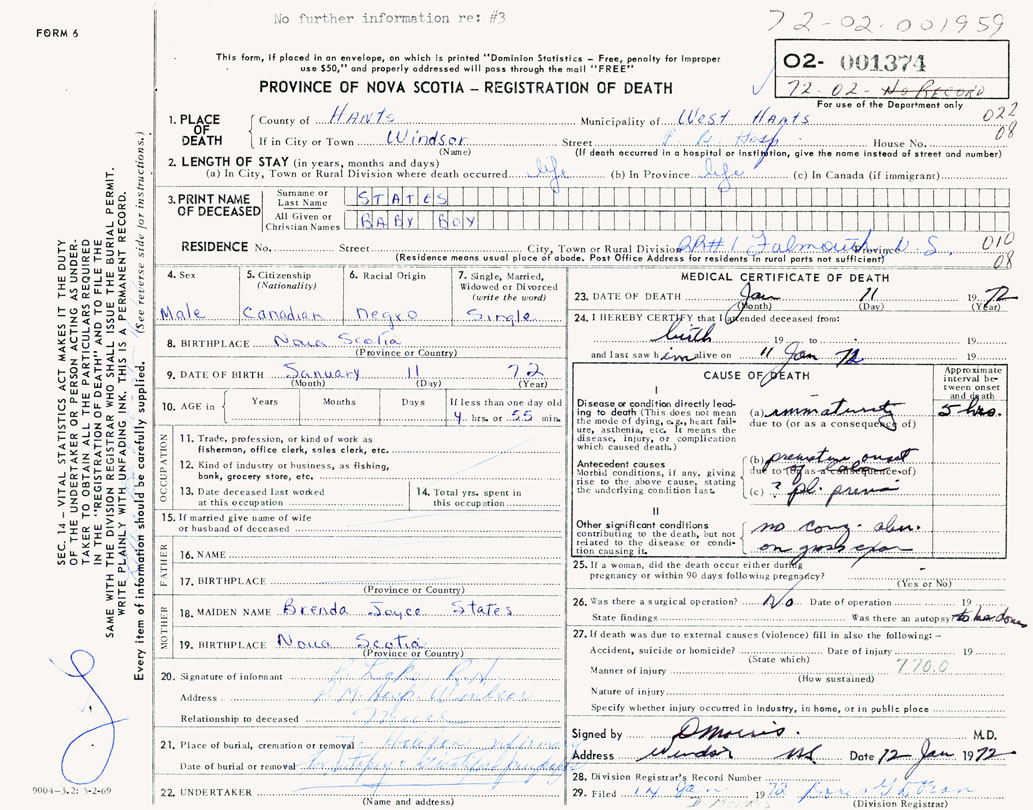 No further information re: #3
72-02-001959
FORM 6
This form, if placed in an envelope, on which is printed "Dominion Statistics – Free, penalty for improper
use $50," and properly addressed will pass through the mail "FREE"
O2- 001374
72-02- No Record
For use of the Department only
PROVINCE OF NOVA SCOTIA – REGISTRATION OF DEATH
1. PLACE OF DEATH
County of Hants Municipality of West Hants 022
If in City or Town Windsor Street Hosp House No. 08
(Name) (If death occurred in a hospital or institution, give the name instead of street and number)
2. LENGTH OF STAY (in years, months and days)
(a) In City, Town or Rural Division where death occurred life (b) In Province life (c) In Canada (if immigrant)
3. PRINT NAME OF DECEASED
Surname or Last Name STATES
All Given or Christian Names BABY BOY
RESIDENCE No. Street City, Town or Rural Division RR#1 Falmouth Province N.S. 010
(Residence means usual place of abode. Post Office Address for residents in rural parts not sufficient) 08
4. Sex
Male
5. Citizenship
(Nationality)
Canadian
6. Racial Origin
Negro
7. Single, Married,
Widowed or Divorced
(write the word)
Single
8. BIRTHPLACE Nova Scotia
(Province or Country)
9. DATE OF BIRTH January 11 72
(Month) (Day) (Year)
10. AGE in
Years
Months
Days
If less than one day old
4 hrs. or 55 min.
OCCUPATION
11. Trade, profession, or kind of work as
fisherman, office clerk, sales clerk, etc.
12. Kind of industry or business, as fishing,
bank, grocery store, etc.
13. Date deceased last worked
at this occupation
14. Total yrs. spent in
this occupation
15. If married give name of wife
or husband of deceased
FATHER
16. NAME
17. BIRTHPLACE
(Province or Country)
MOTHER
18. MAIDEN NAME Brenda Joyce States
19. BIRTHPLACE Nova Scotia
(Province or Country)
20. Signature of informant
Address Hosp. Windsor
Relationship to deceased
21. Place of burial, cremation or removal Halifax
Date of burial or removal
22. UNDERTAKER
(Name and address)
MEDICAL CERTIFICATE OF DEATH
23. DATE OF DEATH Jan 11 1972
(Month) (Day) (Year)
24. I HEREBY CERTIFY that I attended deceased from:
birth 19 to 19
and last saw him alive on 11 Jan 72 19
CAUSE OF DEATH
Approximate
interval be-
tween onset
and death
I
Disease or condition directly lead-
ing to death (This does not mean
the mode of dying, e.g., heart fail-
ure, asthenia, etc. It means the
disease, injury, or complication
which caused death.)
(a) immaturity 5 hrs.
due to (or as a consequence of)
Antecedent causes
Morbid conditions, if any, giving
rise to the above cause, stating
the underlying condition last.
(b) premature onset
due to (or as a consequence of)
of labor
(c) ? pl. previa
II
Other significant conditions
contributing to the death, but not
related to the disease or condi-
tion causing it.
no cong. abn.
on gross exam
25. If a woman, did the death occur either during
pregnancy or within 90 days following pregnancy?
(Yes or No)
26. Was there a surgical operation? No Date of operation 19
State findings Was there an autopsy? to be done
27. If death was due to external causes (violence) fill in also the following: –
Accident, suicide or homicide? Date of injury 19
(State which)
Manner of injury 770.0
(How sustained)
Nature of injury
Specify whether injury occurred in industry, in home, or in public place
Signed by D Morris M.D.
Address Windsor NS Date 12 Jan 1972
28. Division Registrar's Record Number
29. Filed 14 Jan 1972
D. Morris (Division Registrar)
SEC. 14 – VITAL STATISTICS ACT MAKES IT THE DUTY
OF THE UNDERTAKER OR PERSON ACTING AS UNDER-
TAKER TO OBTAIN ALL THE PARTICULARS REQUIRED
IN THE "REGISTRATION OF DEATH" AND TO FILE THE
SAME WITH THE DIVISION REGISTRAR WHO SHALL ISSUE THE BURIAL PERMIT.
WRITE PLAINLY WITH UNFADING INK. THIS IS A PERMANENT RECORD.
Every item of information should be carefully supplied. (See reverse side for instructions.)
9004-3.2: 5-2-69